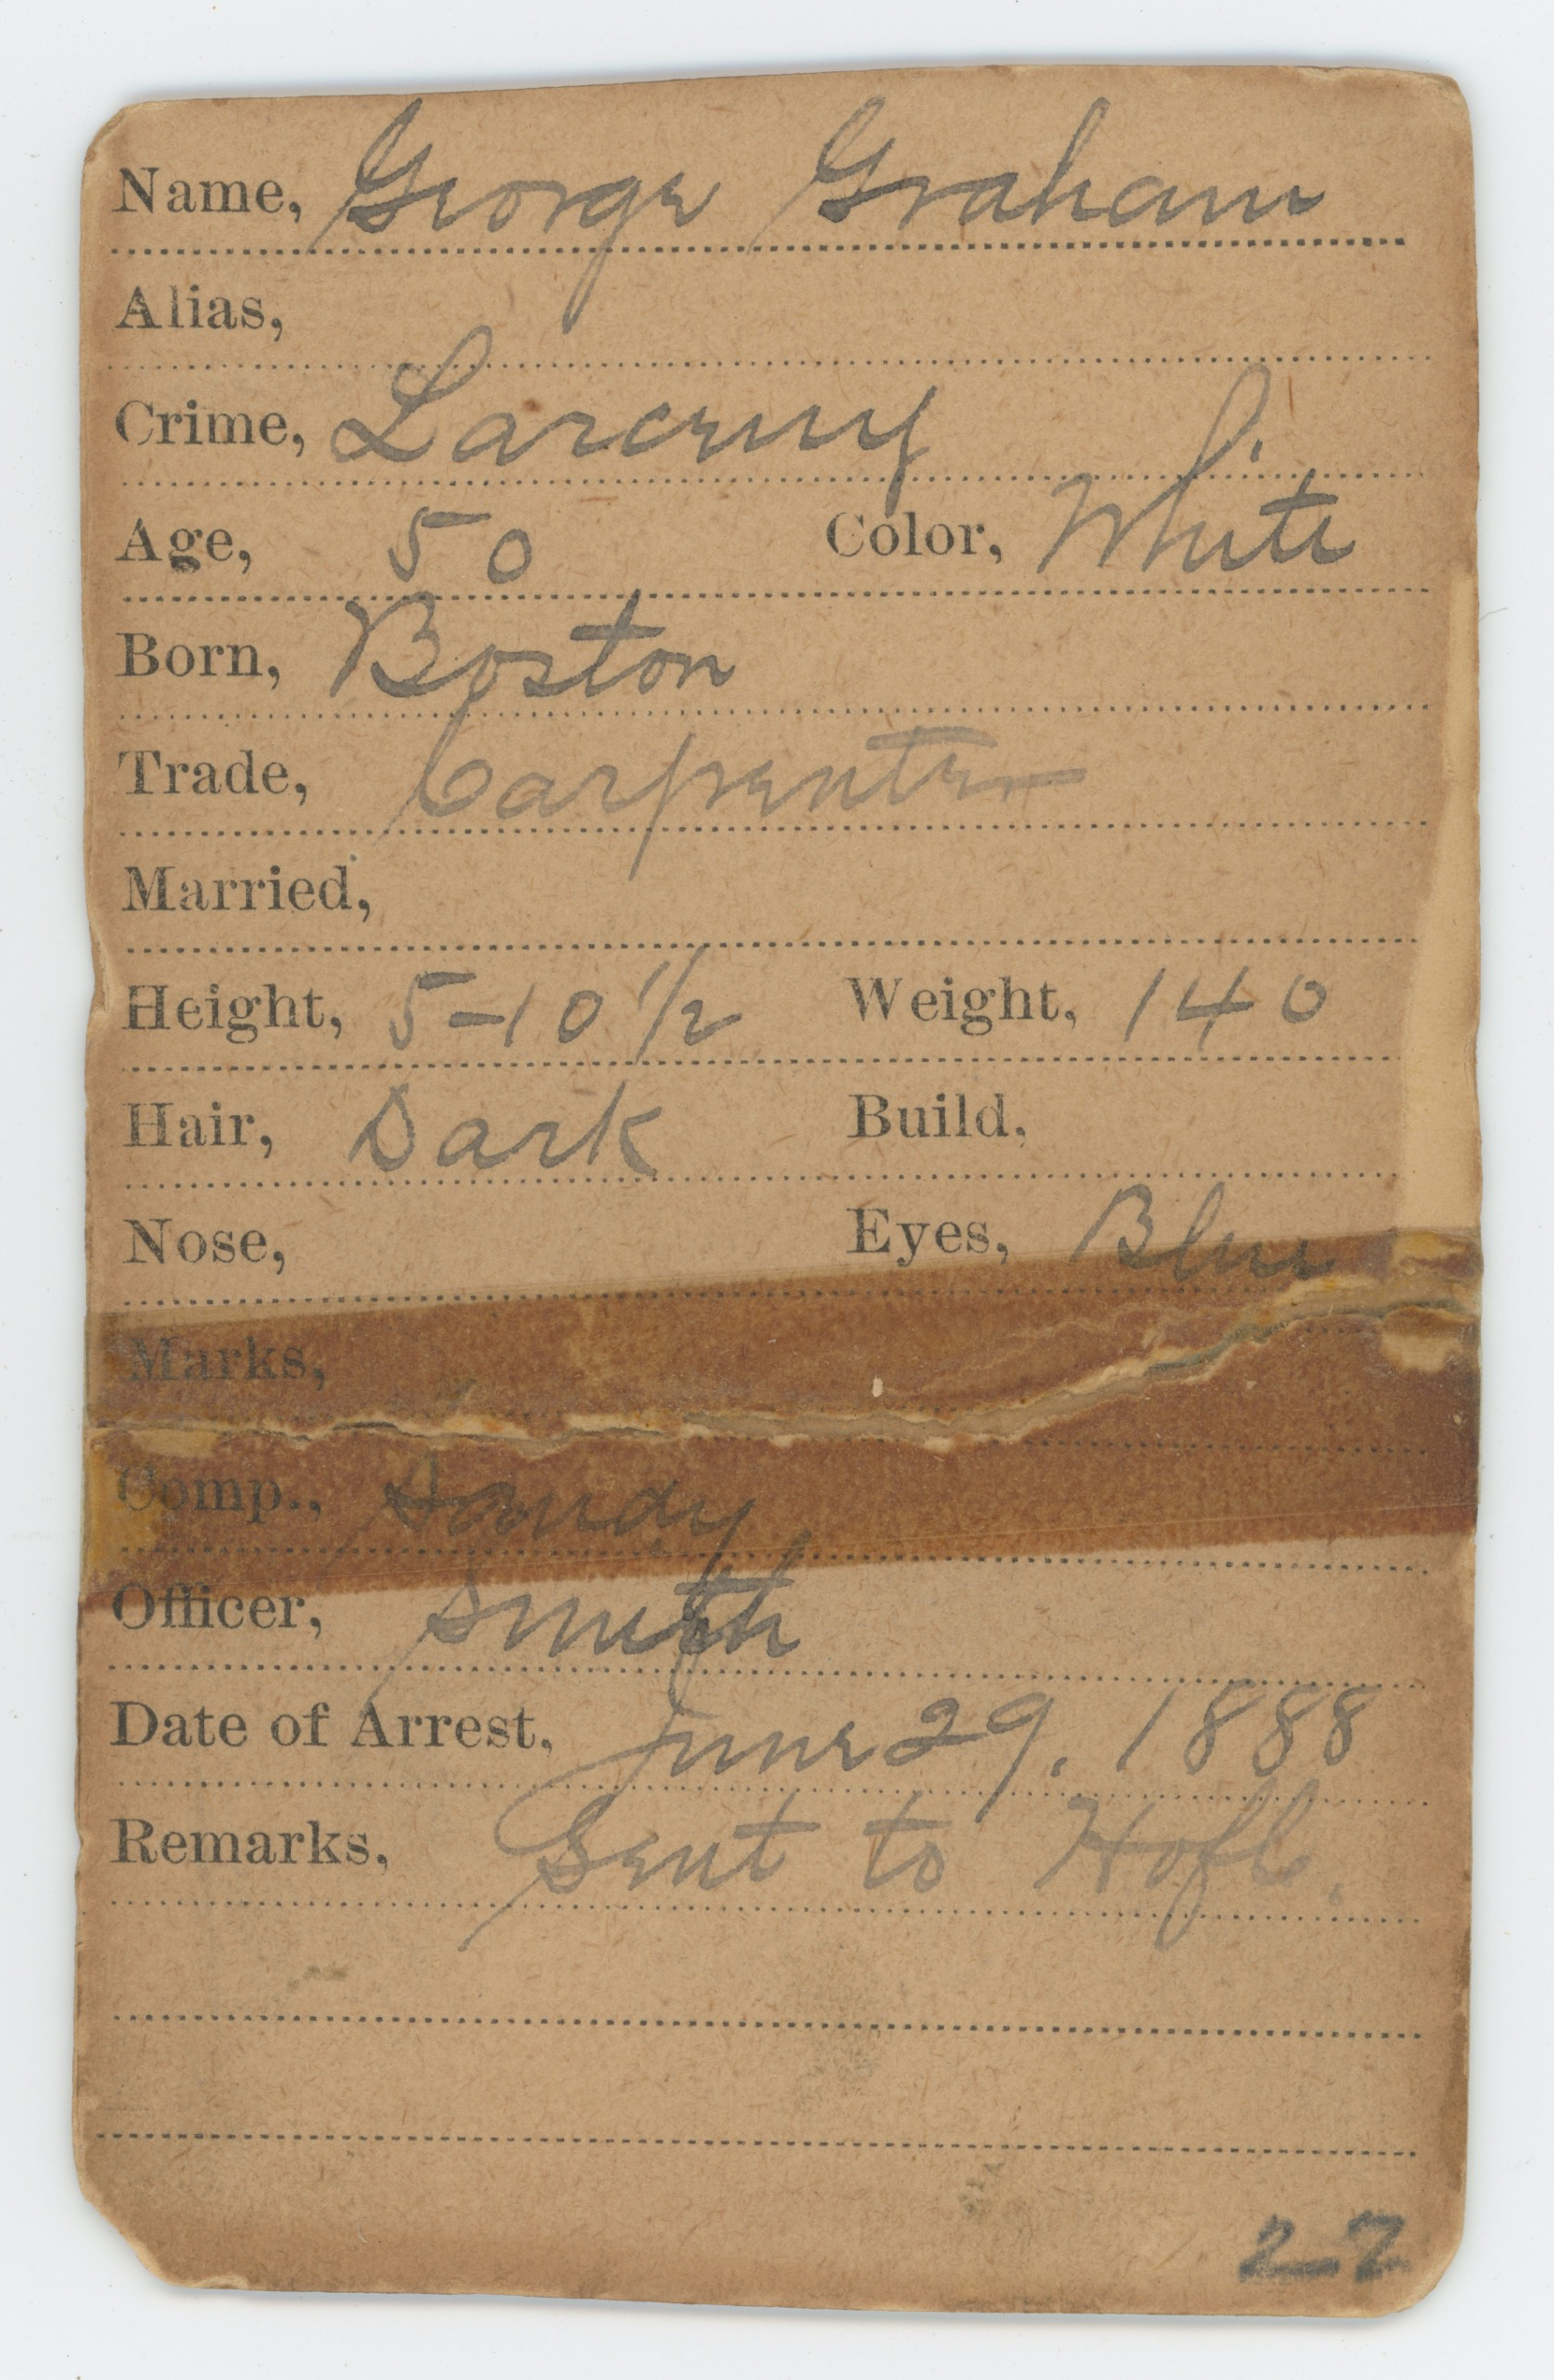 Name, George Graham
Alias,
Crime, Larceny
Age, 50 Color, White
Born, Boston
Trade, Carpenter
Married,
Height, 5-10 1/2 Weight, 140
Hair, Dark Build,
Nose, Eyes, Blue
Marks,
Comp., Sandy
Officer, Smith
Date of Arrest, June 29. 1888
Remarks, Sent to HofC.
27